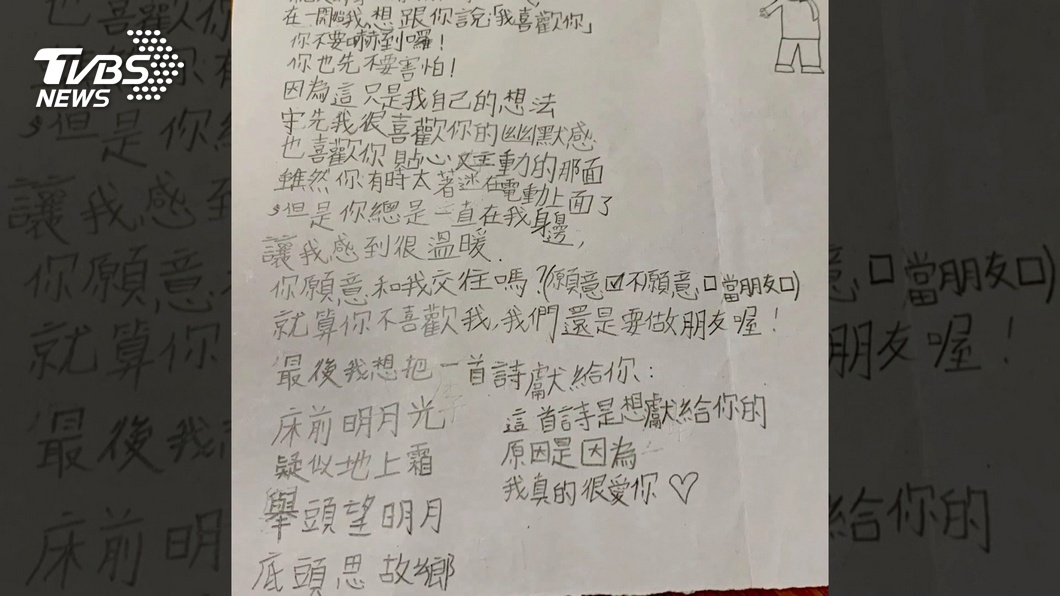 TVBS
NEWS
在一開始我想跟你說「我喜歡你」
你不要嚇到囉!
你也先不要害怕!
因為這只是我自己的想法
宇先我很喜歡你的幽默感
也喜歡你貼心又主動的那面
雖然你有時太著迷在電動上面了
,但是你總是一直在我身邊,
讓我感到很溫暖.
你願意和我交往嗎?(願意☑不願意□當朋友□)
就算你不喜歡我,我們還是要做朋友喔!
最後我想把一首詩獻給你:
床前明月光
疑似地上霜
舉頭望明月
底頭思故鄉
這首詩是想獻給你的
原因是因為
我真的很愛你♡